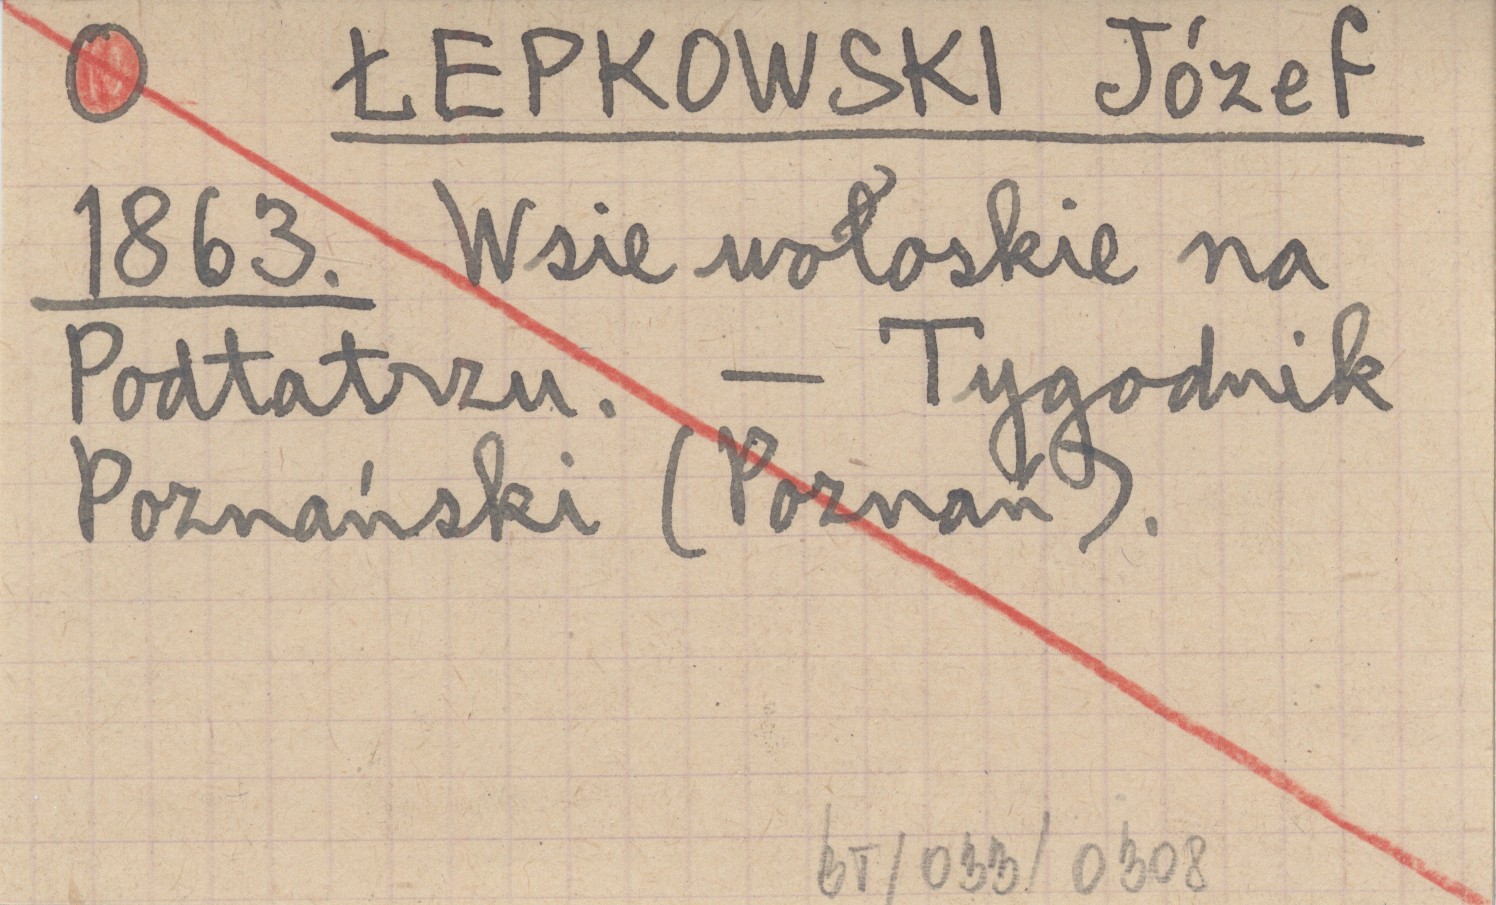 ŁEPKOWSKI Józef
1863. Wsie wołoskie na
Podtatrzu. — Tygodnik
Poznański (Poznań).
BT/033/0308